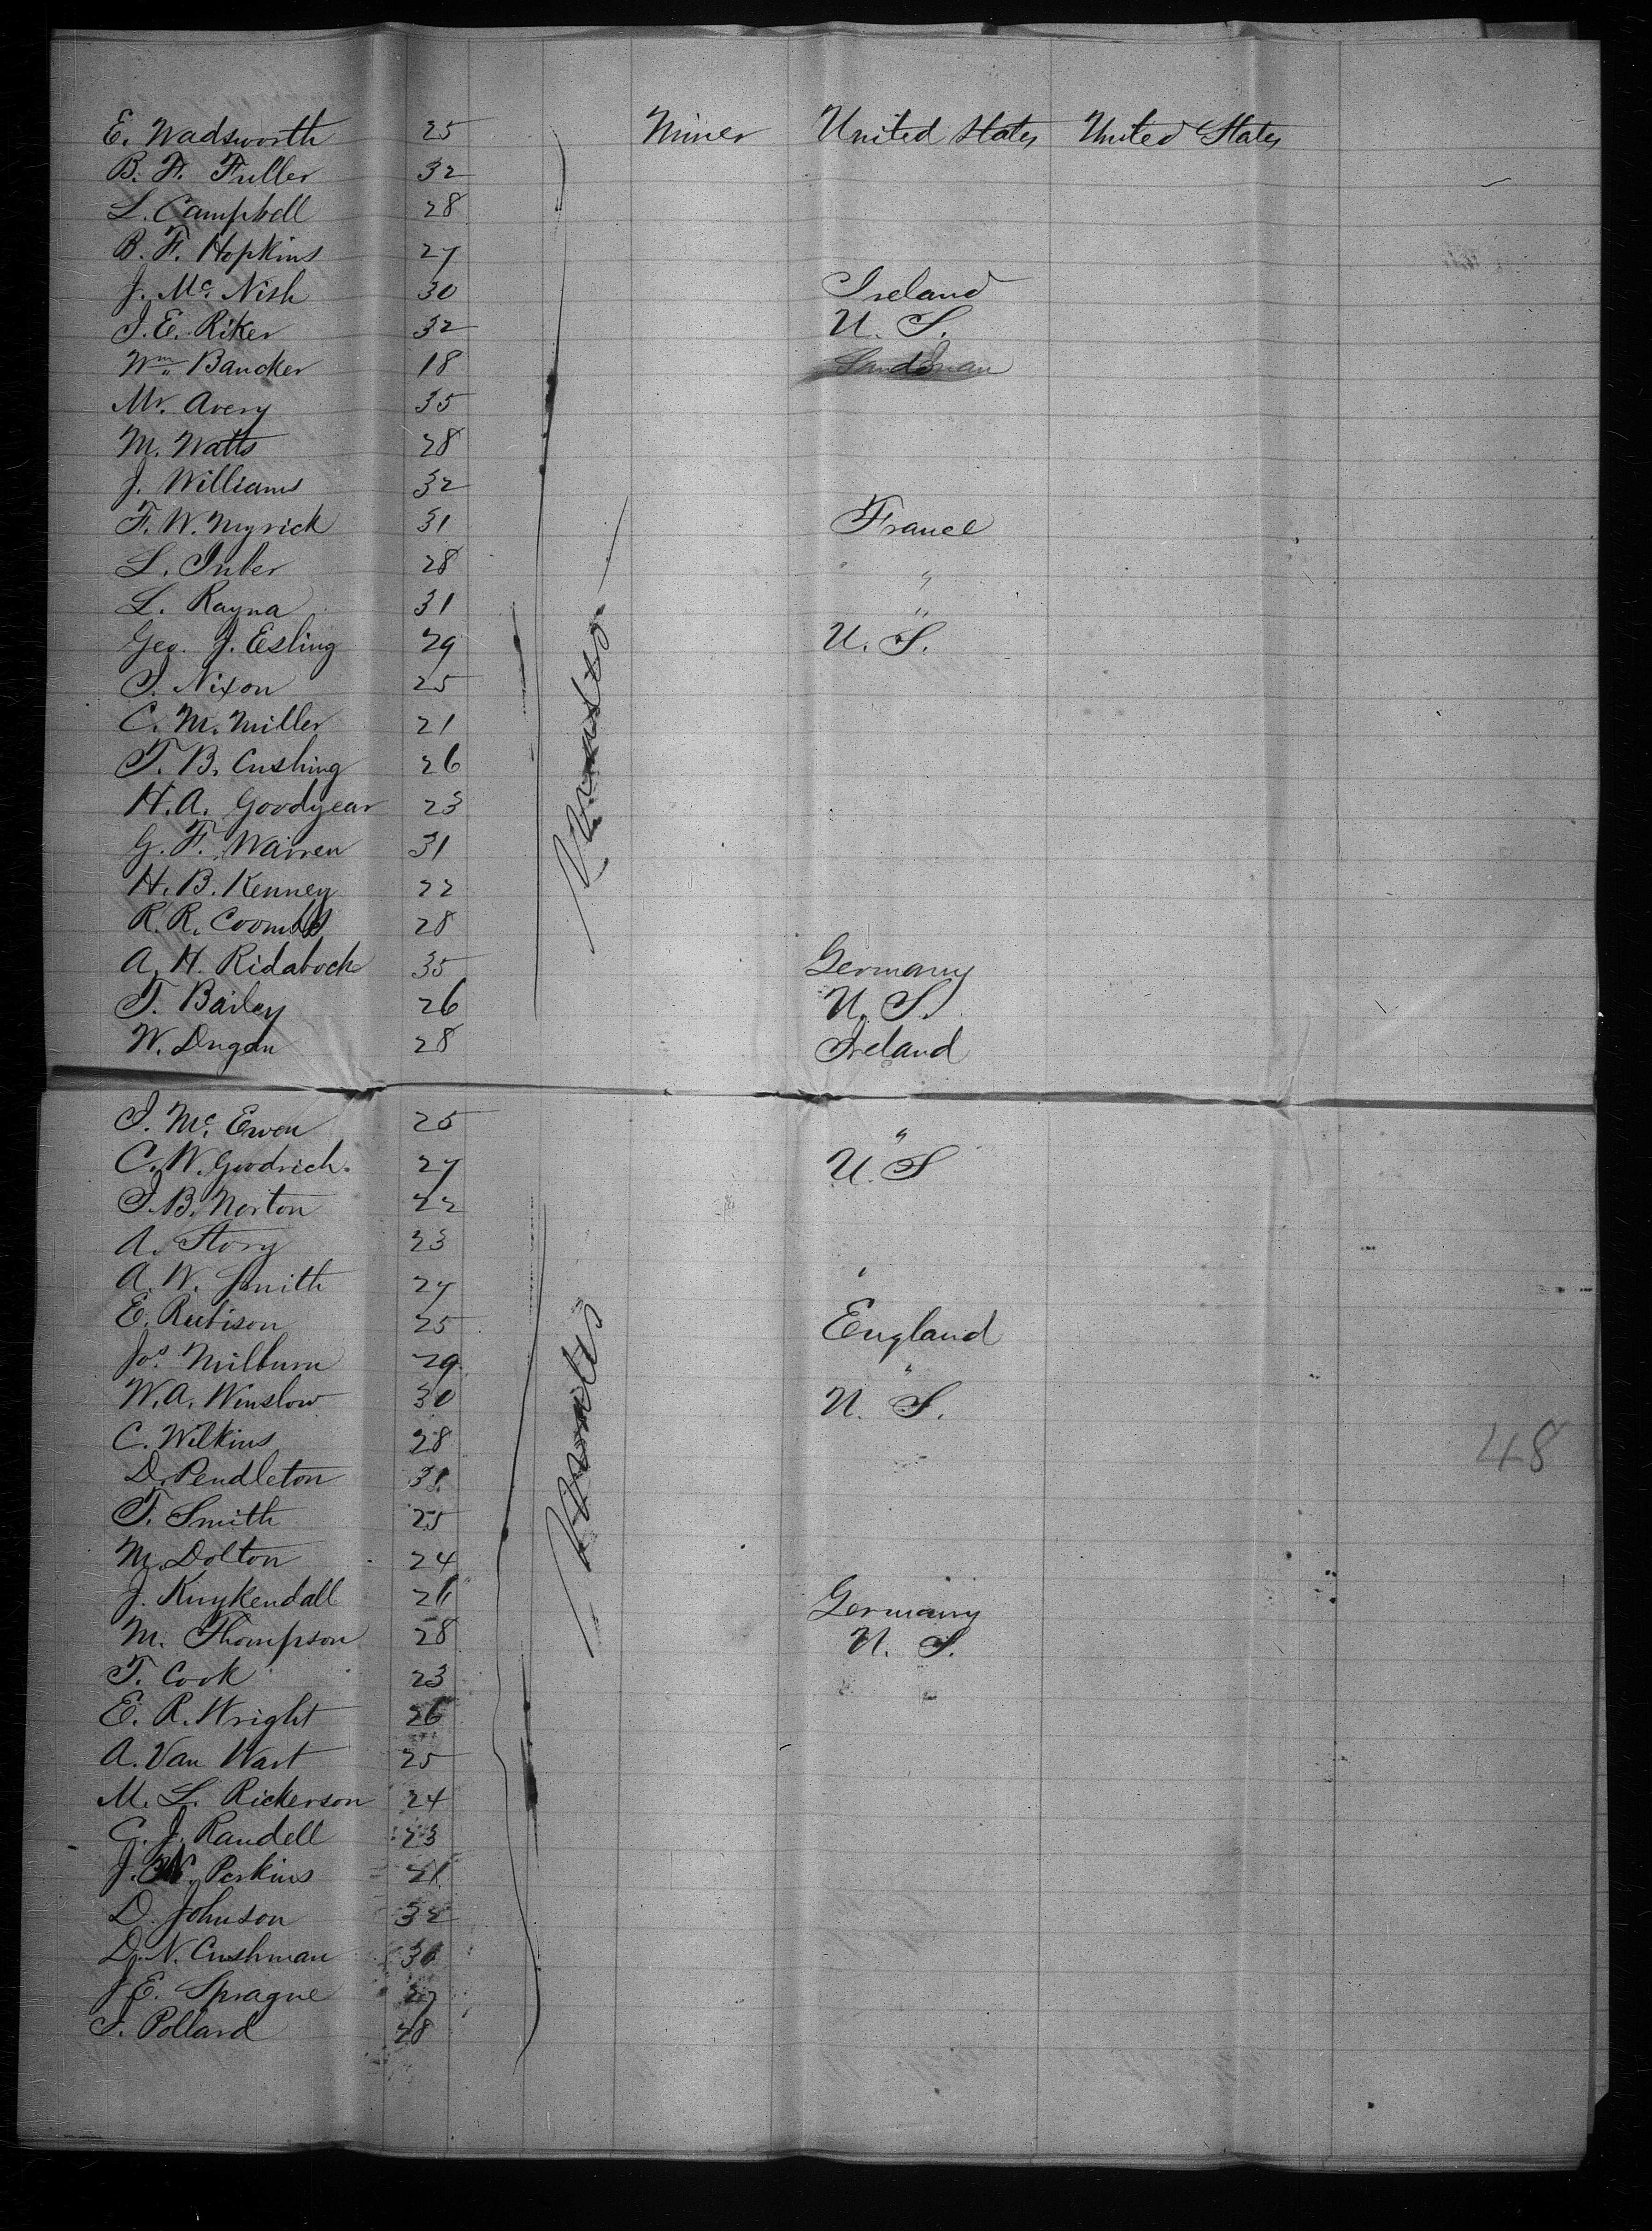 E. Wadsworth 25 Miner United States United States
B. F. Fuller 32
L. Campbell 28
B. F. Hopkins 27
J. Mc. Nish 30 Ireland
J. E. Riker 32 U. S.
Wm. Bancker 18
Mr. Avery 35
M. Watts 28
J. Williams 32
F. W. Myrick 31 France
L. 28 "
L. Rayna 31 "
Geo. J. Esling 29 U. S.
J. Nixon 25
C. M. Miller 21
T. B. Cushing 26
H. A. Goodyear 23
G. F. Warren 31
H. B. Kenney 22
R. R. Coombs 28
A. H. Ridabock 35 Germany
T. Bailey 26 U. S.
W. Dugan 28 Ireland
J. Mc. Ewen 25 "
C. W. Goodrich. 27 U. S
J. B. Norton 22
A. Story 23
A. W. Smith 27
E. Rubison 25 England
Jos. Milburn 29 "
W. A. Winslow 30 U. S.
C. Wilkins 28
D. Pendleton 31 48
T. Smith 25
M. Dolton 24
J. Kuykendall 26 Germany
M. Thompson 28 U. S.
T. Cook 23
E. R. Wright 26
A. Van Wart 25
M. L. Rickerson 24
C. J. Randell 23
J. W. Perkins 21
D. Johnson 32
D. N. Cushman 30
J. E. Sprague 27
J. Pollard 28